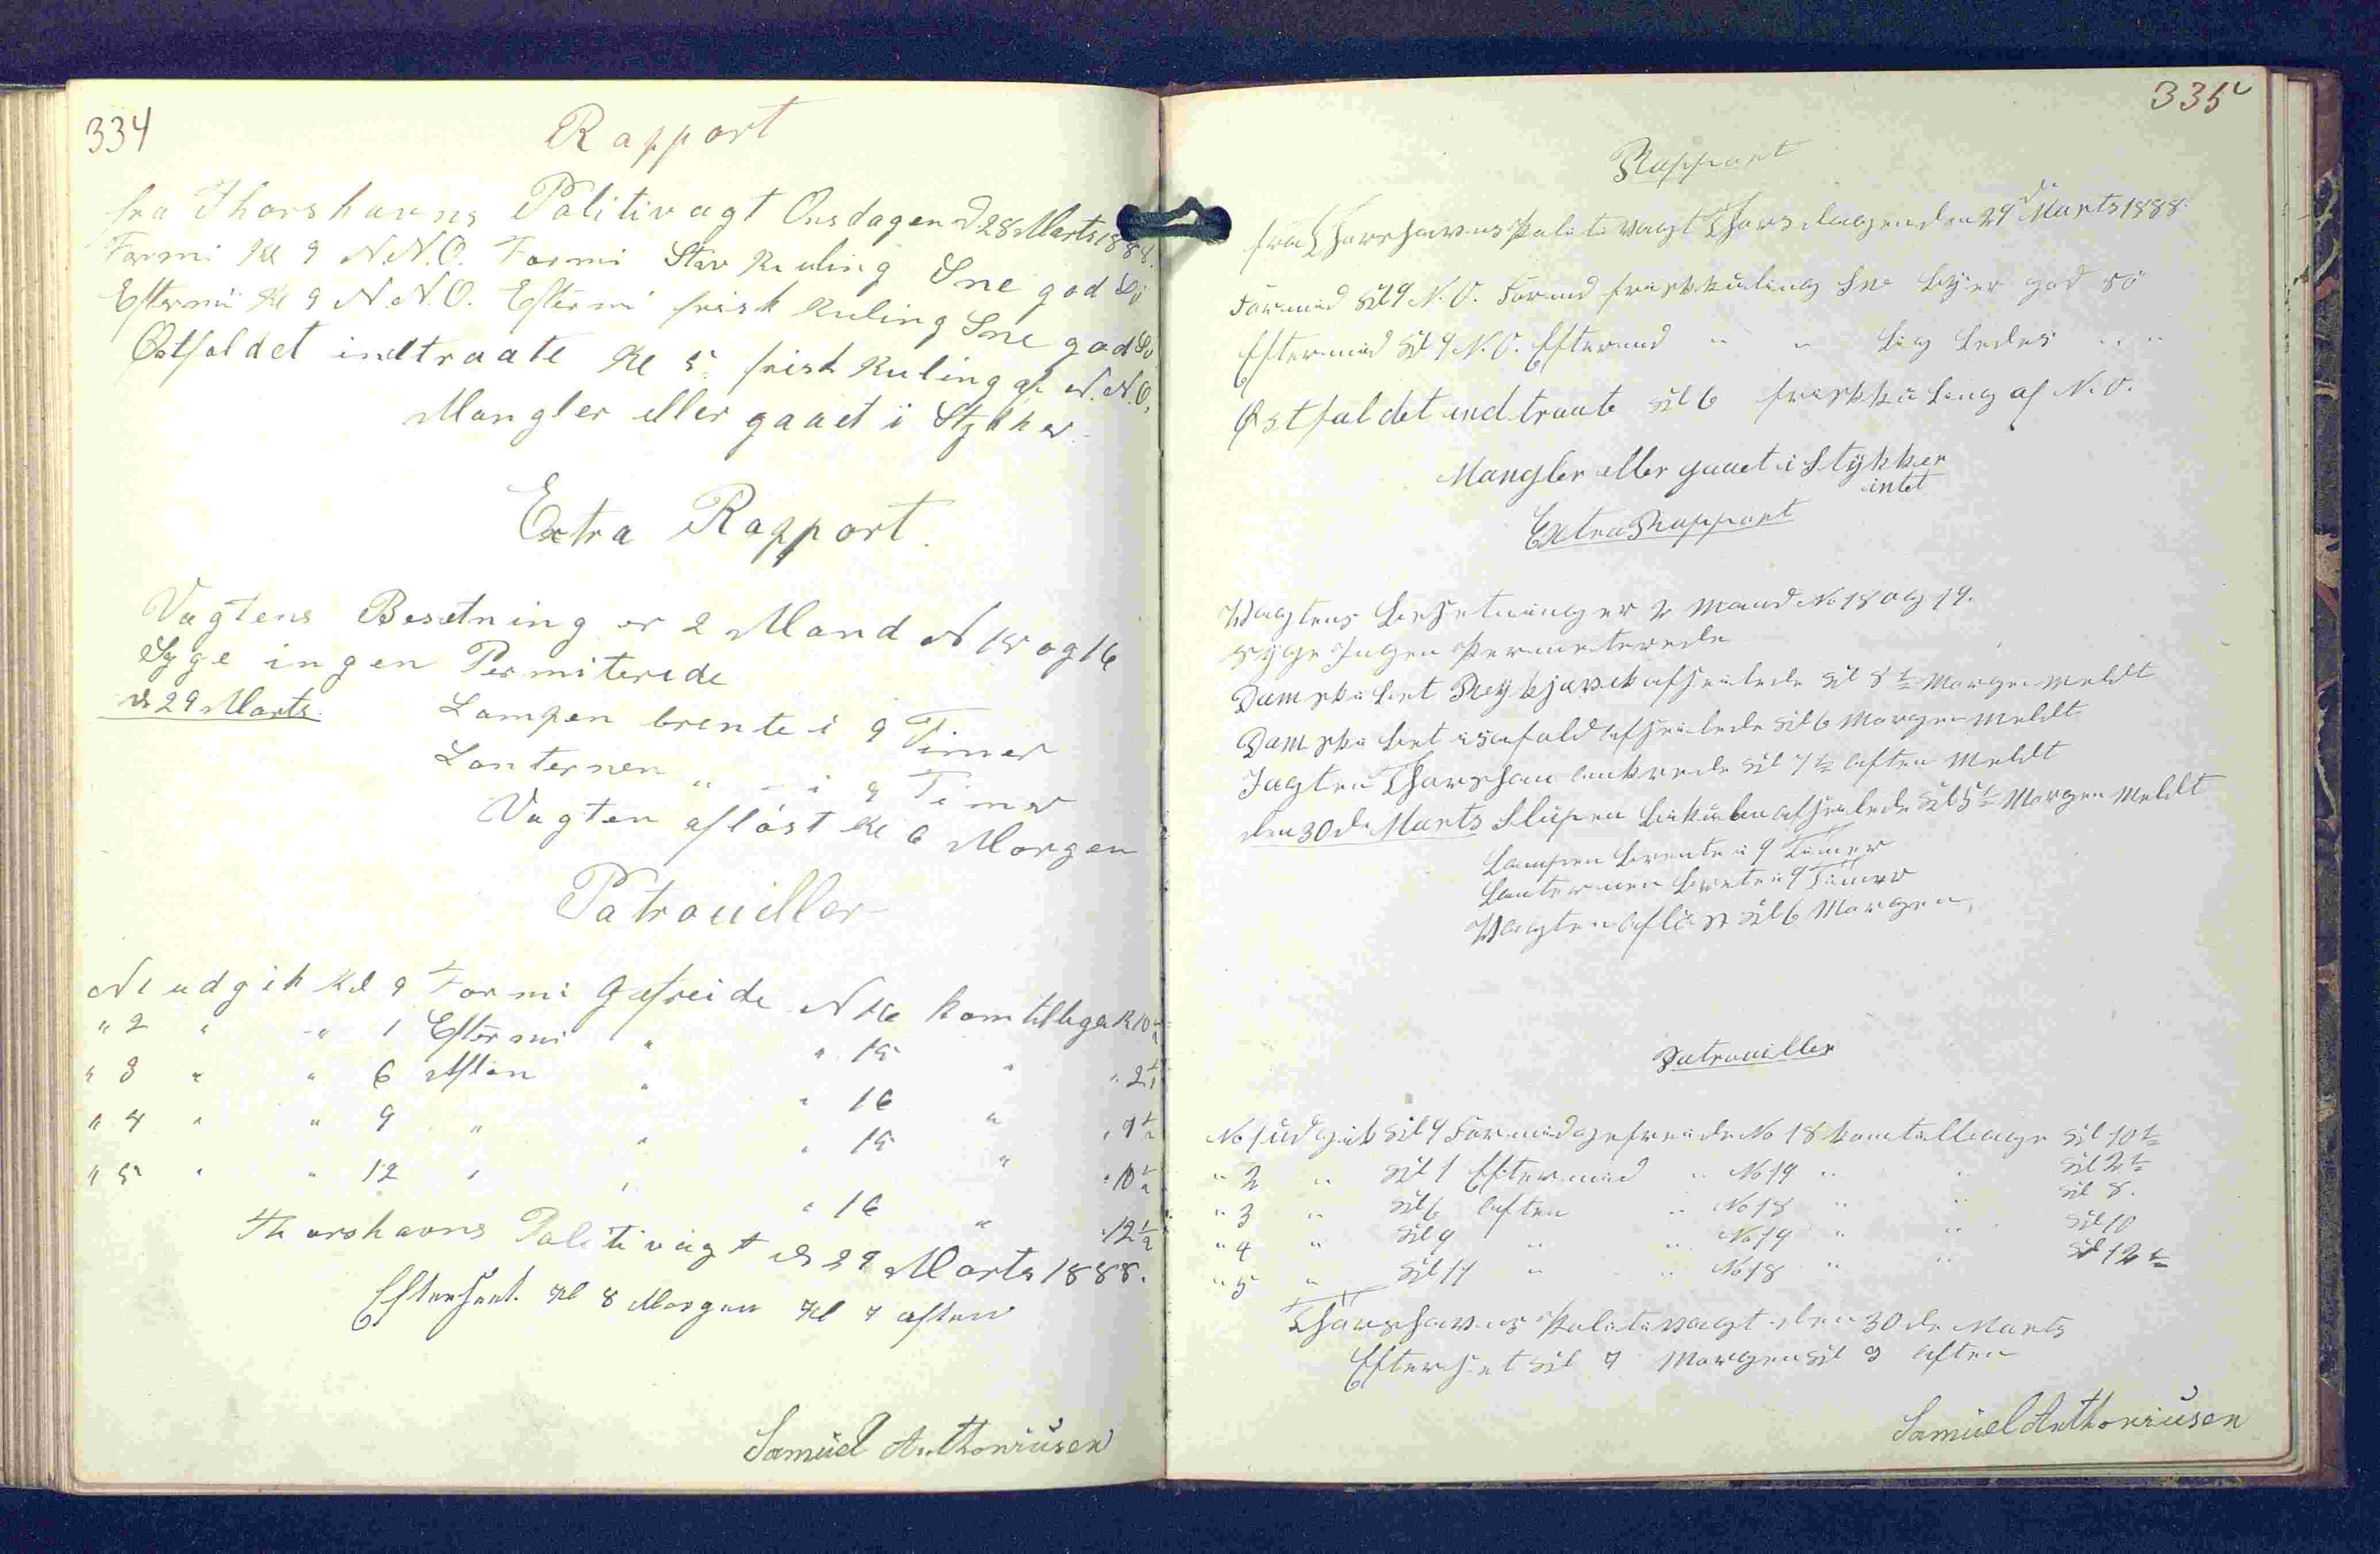 334
Rapport
fra Thorshavns Politivagt Onsdagen d 28 Marts 1888.
Formi Kl 9 N.N.O. Formi Stiv Kuling Sne god Sö
Eftermi Kl 9 N.N.O. Eftermi frisk Kuling Sne god Sö
Østfaldet indtraate Kl 5 frisk Kuling af N.N.O.
Mangler eller gaaet i Stykker
Extra Rapport.
Vagtens Besetning er 2 Mand N 15 og 16
Syge ingen Permiterede
d 29 Marts. Lampen brente i 9 Timer
Lanternen " - i 9 Timer
Vagten aflöst Kl 6 Morgen
Patrouiller
N1 udgik Kl 9 Formi Gefreide N 16 kom tilbage K 10 1/2
" 2 " " 1 Eftermi " " 15 " " 2 1/2
" 3 " " 6 Aften " " 16 " "
" 4 " " 9 " " " 15 " " 10 1/2
" 5 " " 12 " " " 16 " " 12 1/2
Thorshavns Politivagt d 29 Marts 1888.
Efterseet Kl 8 Morgen Kl 7 aften
Samuel Anthoniusen
335
Rapport
fra Thorshavns Politivagt Thorsdagen den 29 de Marts 1888.
Formid Kl 9 N.O. Formd frisk kuling Sne Byer god Sö
Eftermid Kl 9 N.O. Eftermd " " Lig Ledes " "
Østfaldet indtraate Kl 6 frisk kuling af N.O.
Mangler eller gaaet i Stykker
intet
Extra Rapport
Vagtens Besetning er 2 Mand No 18 og 19.
Syge Ingen Permeterede
Damskibet Reykjavik afseilede Kl 8 1/2 Morgen meldt
Damskibet isafold afseilede Kl 6 Morgen Meldt
Jagten Thorshavn ankrede Kl 7 1/2 Aften Meldt
den 30 de Marts Slupen afseilede Kl 5 1/2 Morgen Meldt
Lampen brente i 9 Timer
Lanternen brente i 9 Timer
Vagten Aflöst Kl 6 Morgen,
Patrouiller
No 1 udgik Kl 9 Formid gefreide No 18 kom tilbage Kl 10 1/2
" 2 " Kl 1 Eftermid " No 19 " " Kl 2 1/2
" 3 " Kl 6 Aften " No 18 " " Kl 8.
" 4 " Kl 9 " " No 19 " " Kl 10
" 5 " Kl 11 " " No 18 " " Kl 12 1/2
Thorshavns Politivagt den 30 de Marts
Efterset Kl 7 Morgen Kl 9 Aften
Samuel Anthoniusen